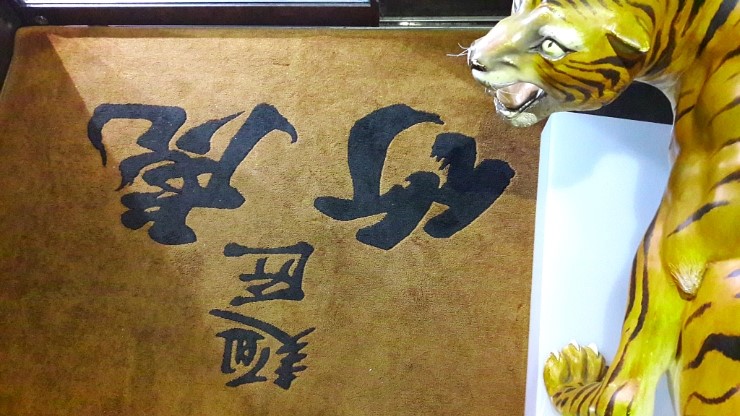 麺匠
竹虎